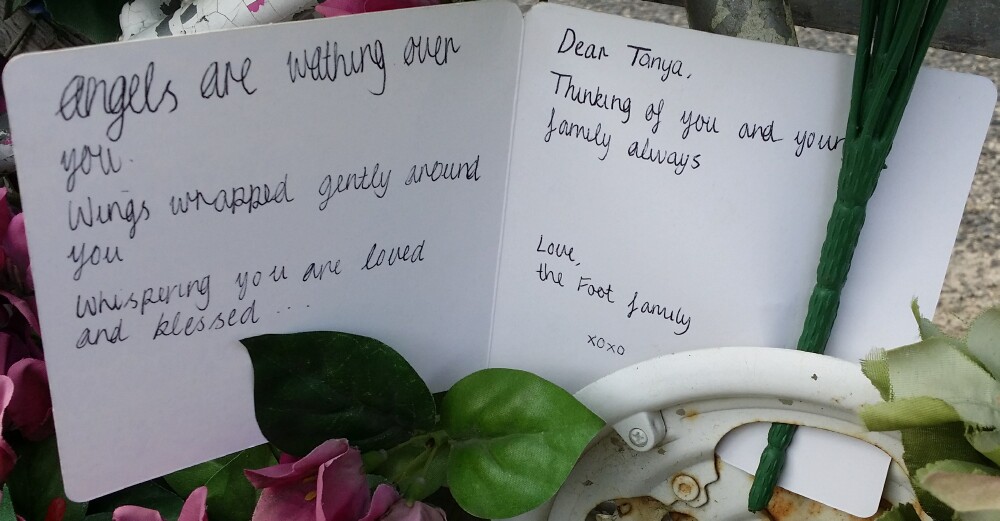 angels are wathing over
you.
Wings wrapped gently around
you
Whispering you are loved
and blessed ...
Dear Tanya,
Thinking of you and your
family always
Love,
the Foot family
xoxo